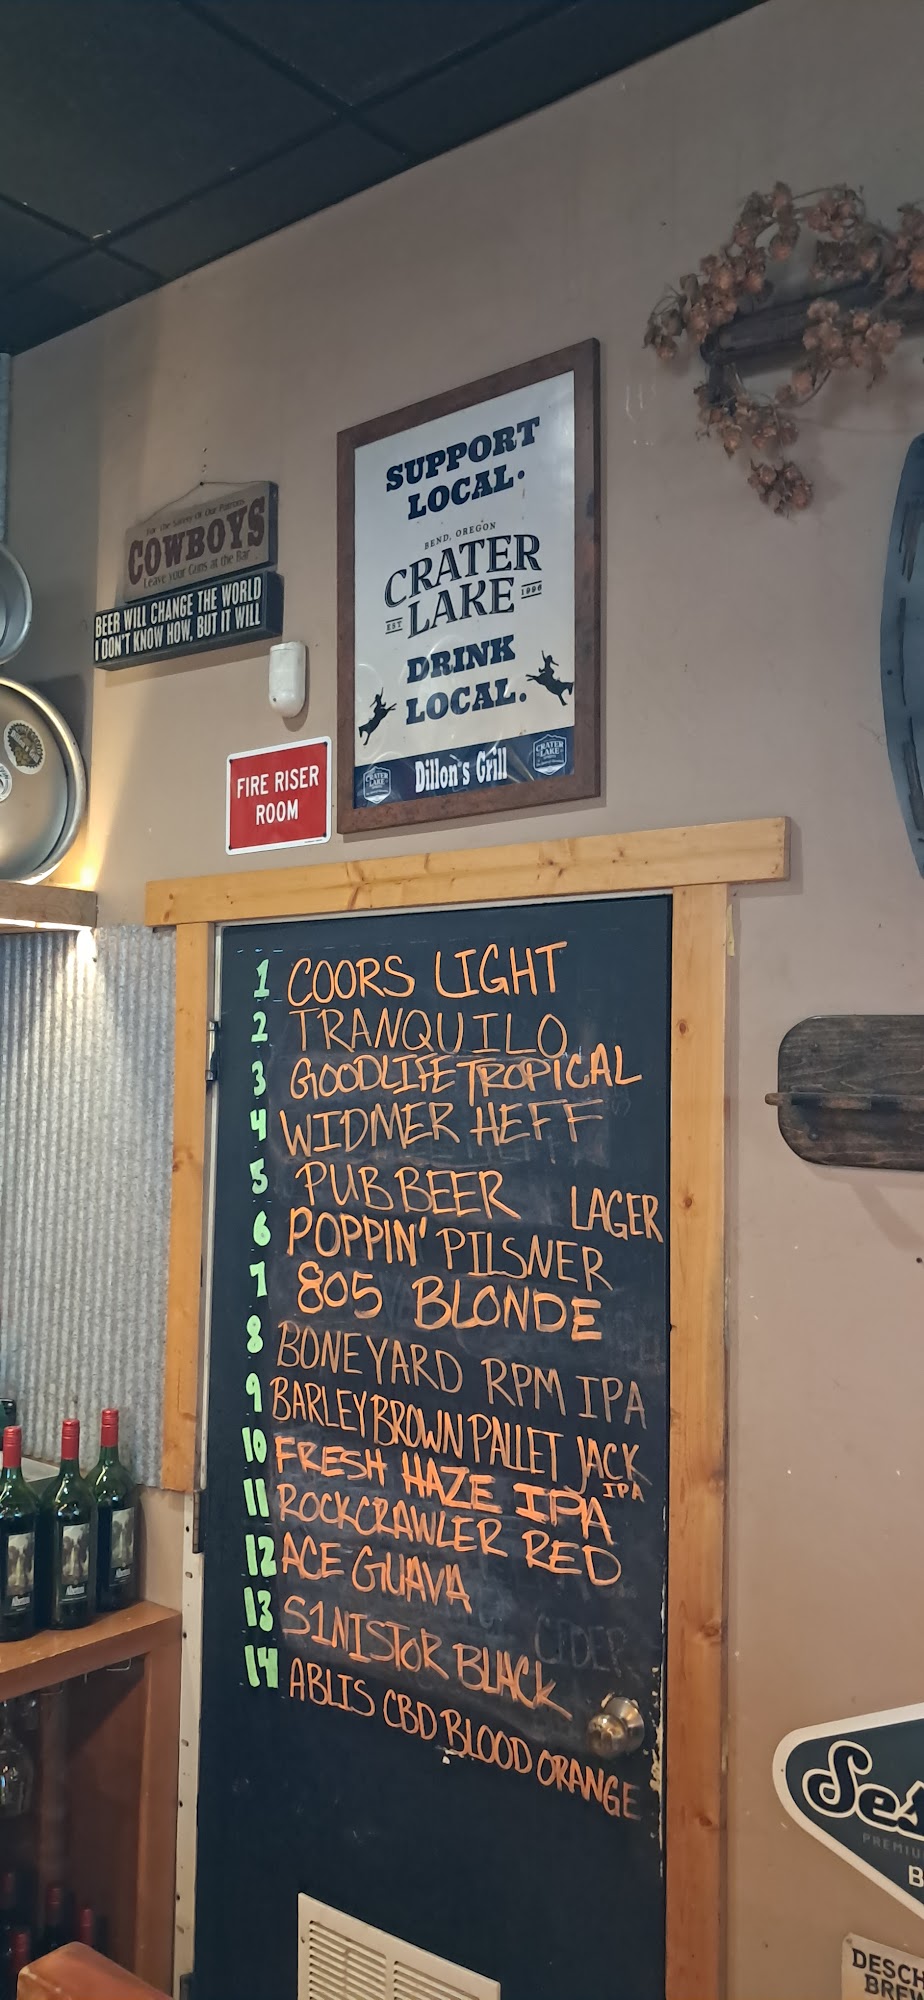 For the Safety of Our Patrons
COWBOYS
Leave your Guns at the Bar
BEER WILL CHANGE THE WORLD
I DON'T KNOW HOW, BUT IT WILL
SUPPORT
LOCAL.
BEND, OREGON
CRATER
LAKE
EST 1996
DRINK
LOCAL.
CRATER LAKE
Dillon's Grill
CRATER LAKE
FIRE RISER
ROOM
1 COORS LIGHT
2 TRANQUILO
3 GOODLIFE TROPICAL
4 WIDMER HEFF
5 PUB BEER LAGER
6 POPPIN' PILSNER
7 805 BLONDE
8 BONEYARD RPM IPA
9 BARLEY BROWN PALLET JACK
IPA
10 FRESH HAZE IPA
11 ROCKCRAWLER RED
12 ACE GUAVA
CIDER
13 S1NISTOR BLACK
14 ABLIS CBD BLOOD ORANGE
Ses
PREMIU
B
DESCH
BREW